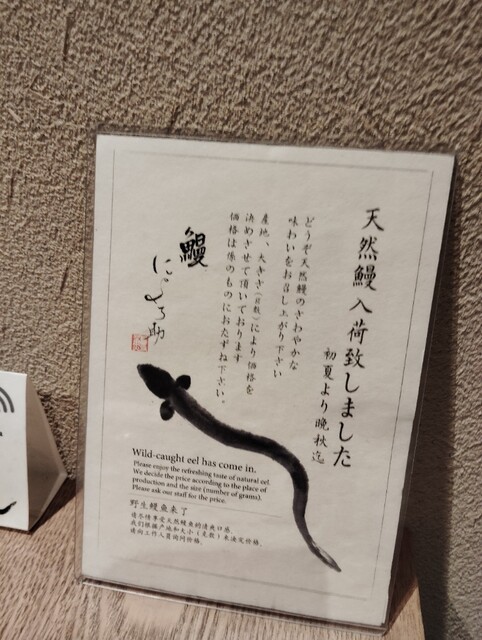 天然鰻入荷致しました
初夏より晩秋迄
どうぞ天然鰻のさわやかな
味わいをお召し上がり下さい
産地、大きさ(目数)により価格を
決めさせて頂いております
価格は係のものにおたずね下さい。
鰻
Wild-caught eel has come in.
Please enjoy the refreshing taste of natural eel.
We decide the price according to the place of
production and the size (number of grams).
Please ask our staff for the price.
野生鳗鱼来了
请尽情享受天然鳗鱼的清爽口感。
我们根据产地和大小(克数)来决定价格。
请向工作人员询问价格。